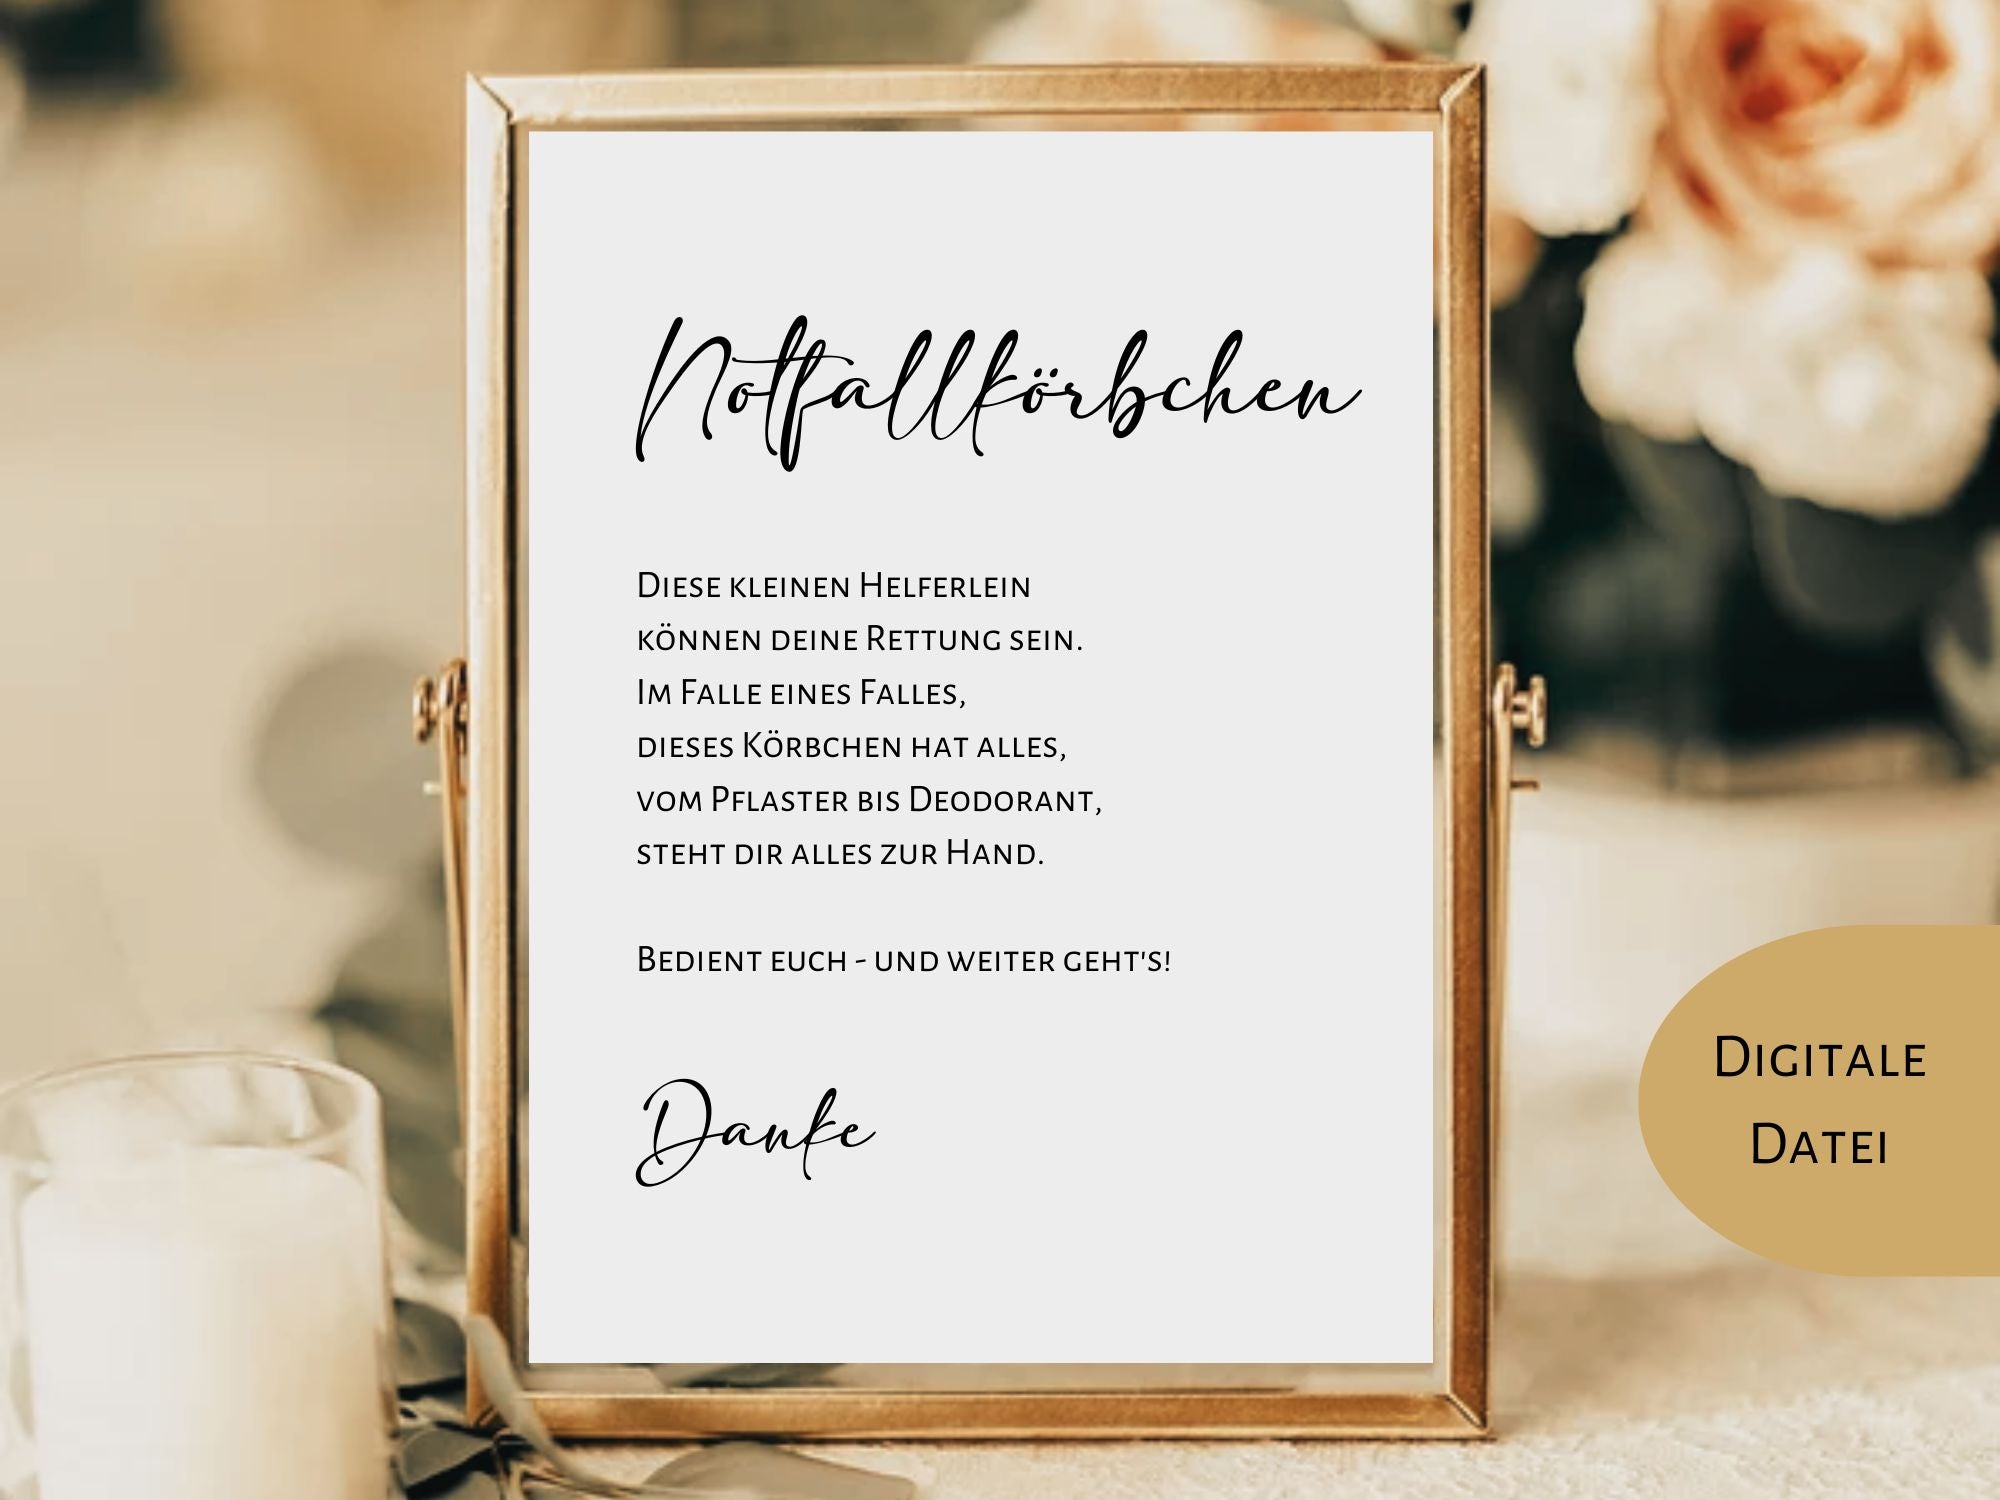 Notfallkörbchen
Diese kleinen Helferlein
können deine Rettung sein.
Im Falle eines Falles,
dieses Körbchen hat alles,
vom Pflaster bis Deodorant,
steht dir alles zur Hand.
Bedient euch - und weiter geht's!
Danke
Digitale
Datei